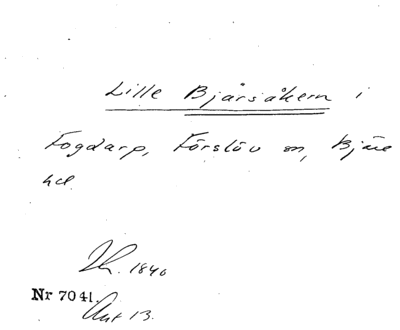 Lille Bjärsåkern i
Fogdarp, Förslöv sn, Bjäre
hd.
Lh. 1840
Nr 7041.
Akt 13.